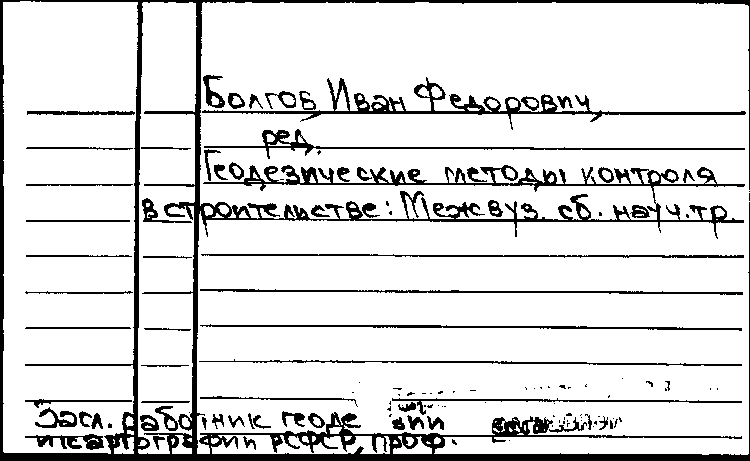 Болгов, Иван Федорович,
ред.
Геодезические методы контроля
в строительстве: Межвуз. сб. науч. тр.
Засл. работник геоде зии
и картографии РСФСР, проф.